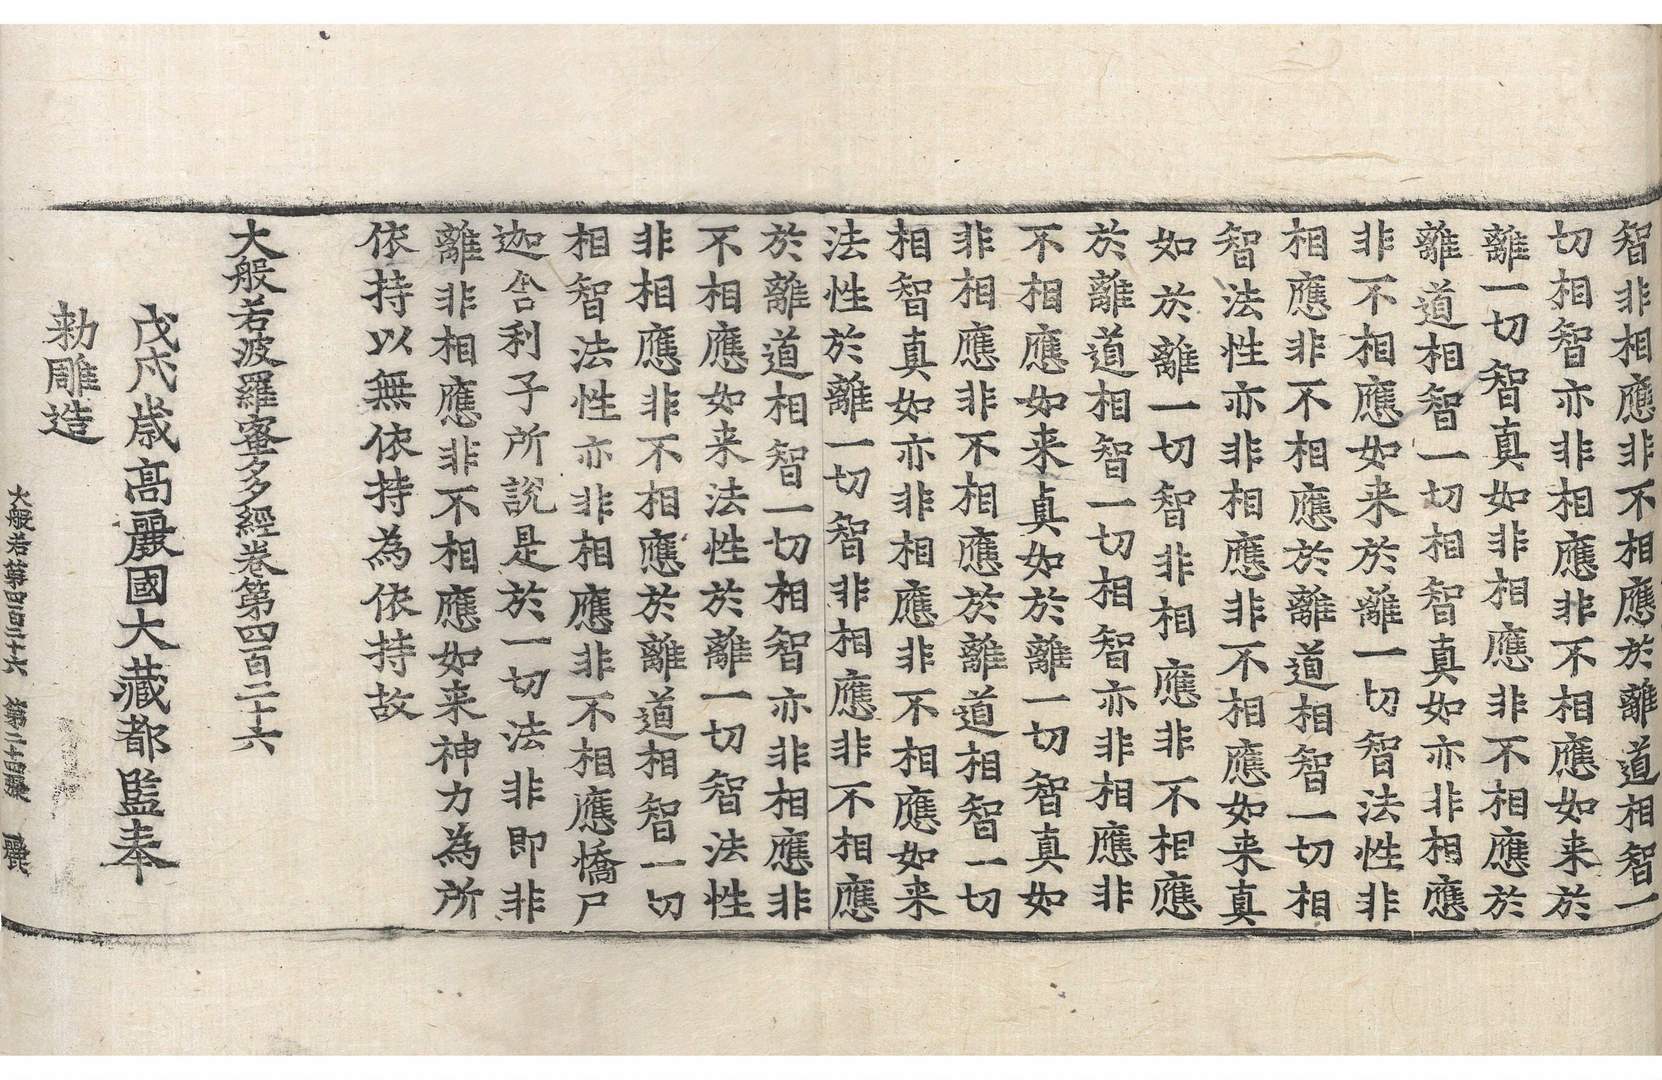 智非相應非不相應於離道相智一
切相智亦非相應非不相應如来於
離一切智真如非相應非不相應於
離道相智一切相智真如亦非相應
非不相應如来於離一切智法性非
相應非不相應於離道相智一切相
智法性亦非相應非不相應如来真
如於離一切智非相應非不相應
於離道相智一切相智亦非相應非
不相應如来真如於離一切智真如
非相應非不相應於離道相智一切
相智真如亦非相應非不相應如来
法性於離一切智非相應非不相應
於離道相智一切相智亦非相應非
不相應如来法性於離一切智法性
非相應非不相應於離道相智一切
相智法性亦非相應非不相應憍尸
迦舍利子所說是於一切法非即非
離非相應非不相應如来神力為所
依持以無依持為依持故
大般若波羅蜜多經卷第四百二十六
戊戌歲高麗國大藏都監奉
勑雕造
大般若第四百二十六 第二十 張 麗